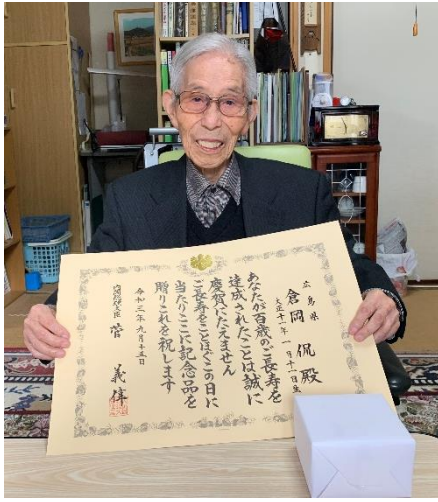 広島県
倉岡 侃 殿
大正十一年一月十一日生
あなたが百歳のご長寿を
達成されたことは誠に
慶賀にたえません
ご長寿をことほぐこの日に
当たりここに記念品を
贈りこれを祝します
令和三年九月十五日
内閣総理大臣 菅 義偉